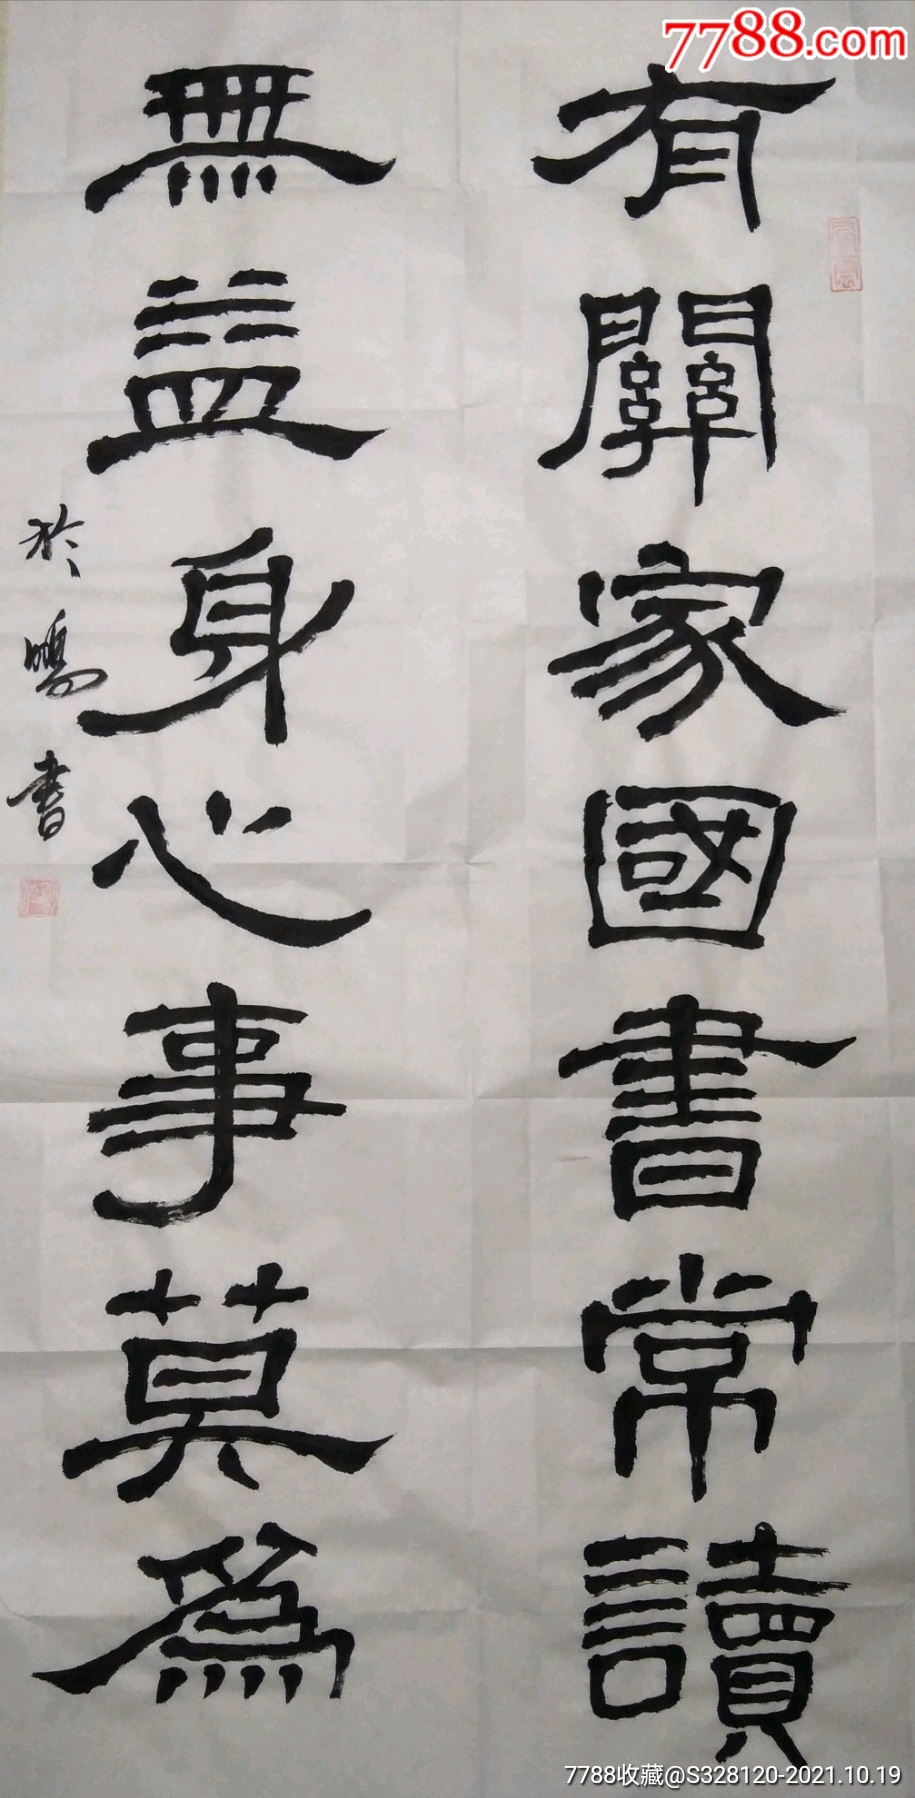 7788.com
有關家國書常讀
無益身心事莫為
於鳴書
7788收藏@S328120-2021.10.19